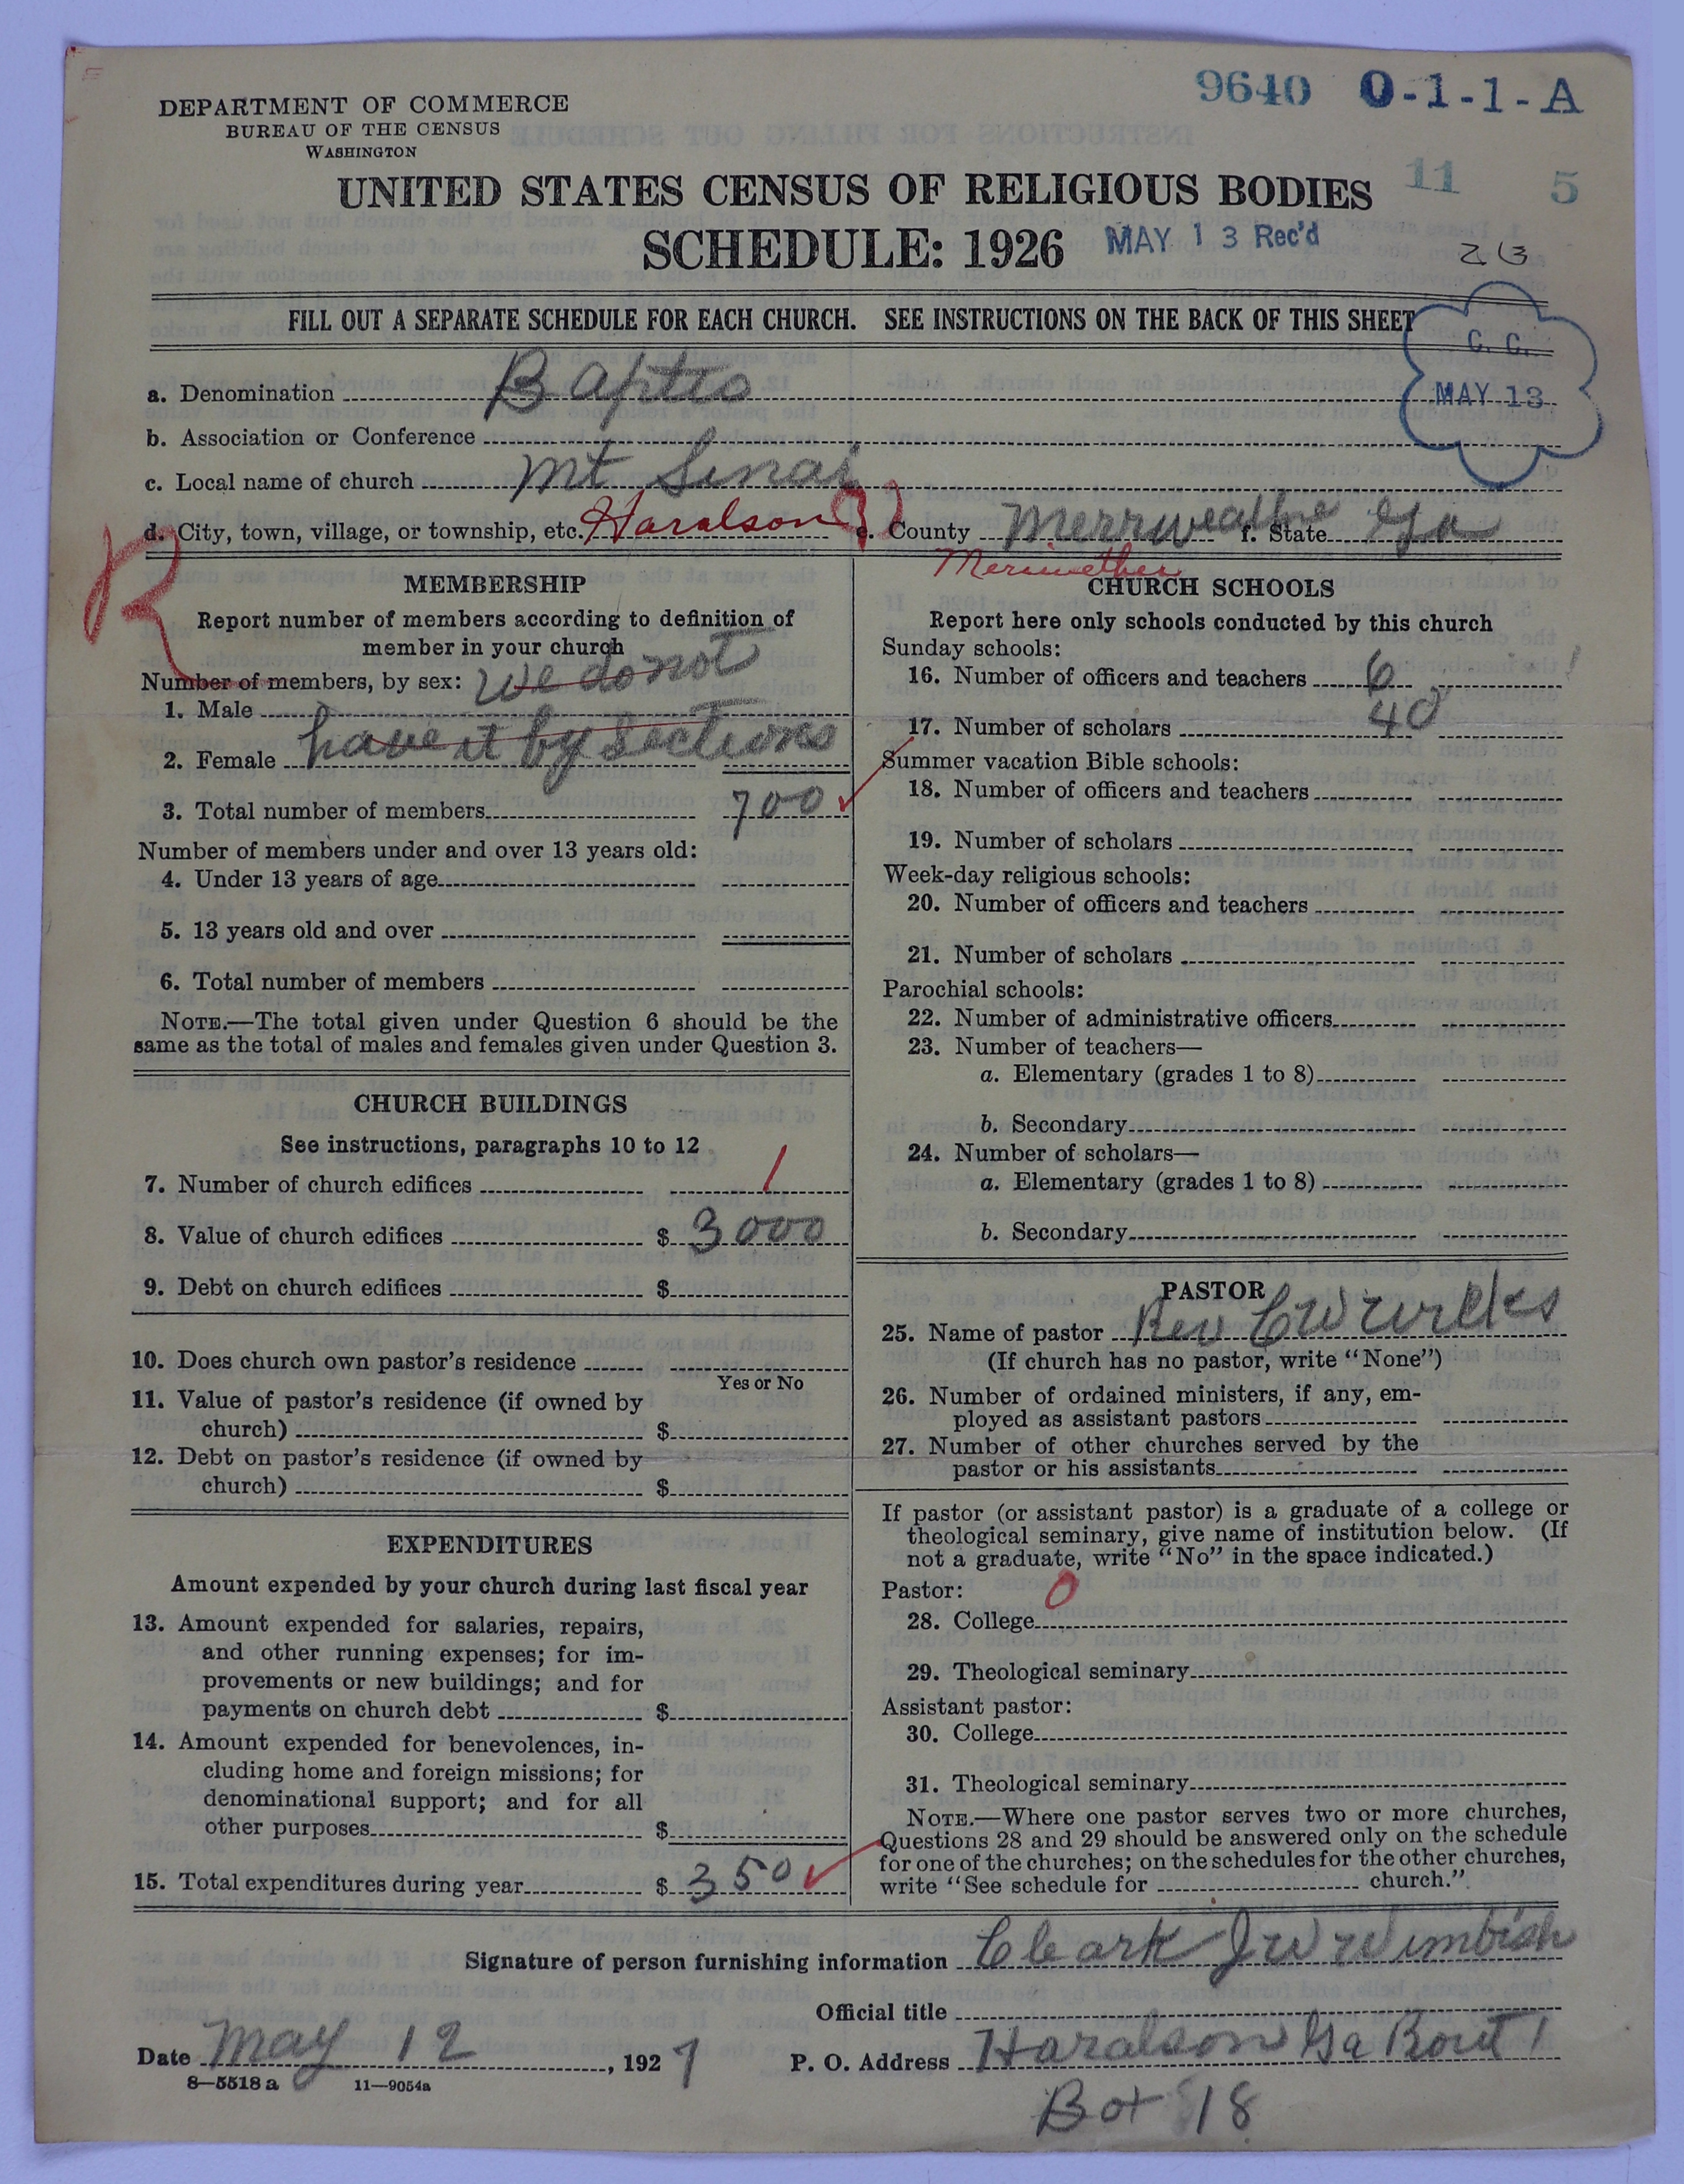 9640 0-1-1-A
DEPARTMENT OF COMMERCE
BUREAU OF THE CENSUS
WASHINGTON
11 5
UNITED STATES CENSUS OF RELIGIOUS BODIES
SCHEDULE: 1926 MAY 13 Rec'd
FILL OUT A SEPARATE SCHEDULE FOR EACH CHURCH. SEE INSTRUCTIONS ON THE BACK OF THIS SHEET
C. C.
MAY 13
a. Denomination Baptis
b. Association or Conference
c. Local name of church Mt Sinai
d. City, town, village, or township, etc. Haralson e. County Merrweather f. State Ga
Meriwether
R
MEMBERSHIP
Report number of members according to definition of
member in your church
Number of members, by sex: We do not
1. Male
2. Female have it by Sections
3. Total number of members 700
Number of members under and over 13 years old:
4. Under 13 years of age
5. 13 years old and over
6. Total number of members
NOTE.—The total given under Question 6 should be the
same as the total of males and females given under Question 3.
CHURCH BUILDINGS
See instructions, paragraphs 10 to 12
7. Number of church edifices 1
8. Value of church edifices $ 3000
9. Debt on church edifices $
10. Does church own pastor's residence
Yes or No
11. Value of pastor's residence (if owned by
church) $
12. Debt on pastor's residence (if owned by
church) $
EXPENDITURES
Amount expended by your church during last fiscal year
13. Amount expended for salaries, repairs,
and other running expenses; for im-
provements or new buildings; and for
payments on church debt $
14. Amount expended for benevolences, in-
cluding home and foreign missions; for
denominational support; and for all
other purposes $
15. Total expenditures during year $ 350
CHURCH SCHOOLS
Report here only schools conducted by this church
Sunday schools:
16. Number of officers and teachers 6
17. Number of scholars 40
Summer vacation Bible schools:
18. Number of officers and teachers
19. Number of scholars
Week-day religious schools:
20. Number of officers and teachers
21. Number of scholars
Parochial schools:
22. Number of administrative officers
23. Number of teachers—
a. Elementary (grades 1 to 8)
b. Secondary
24. Number of scholars—
a. Elementary (grades 1 to 8)
b. Secondary
PASTOR
25. Name of pastor Rev C W
(If church has no pastor, write "None")
26. Number of ordained ministers, if any, em-
ployed as assistant pastors
27. Number of other churches served by the
pastor or his assistants
If pastor (or assistant pastor) is a graduate of a college or
theological seminary, give name of institution below. (If
not a graduate, write "No" in the space indicated.)
Pastor: 0
28. College
29. Theological seminary
Assistant pastor:
30. College
31. Theological seminary
NOTE.—Where one pastor serves two or more churches,
Questions 28 and 29 should be answered only on the schedule
for one of the churches; on the schedules for the other churches,
write "See schedule for church."
Signature of person furnishing information Cleark J W Wimbish
Official title
Date May 12, 1927 P. O. Address Haralson Ga Rout 1
8—5518 a 11—9054a
Box 18